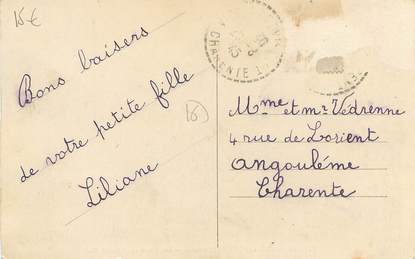 15€
Bons baisers
de votre petite fille
Liliane
CHARENTE
Mme et mr Vedrenne
4 rue de Lorient
angoulème
Charente